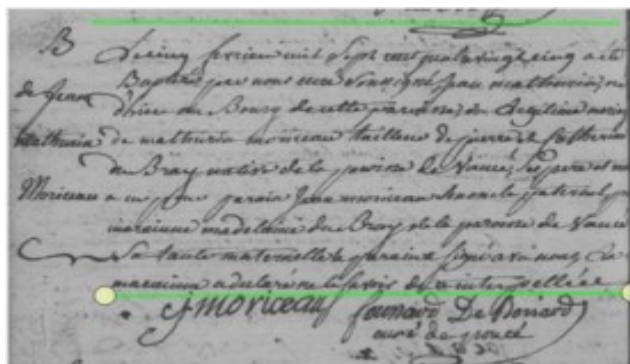 B Le cinq fevrier mil sept cent quatre vingt cinq a été
Baptisé par nous curé soussigné Jean mathurin, né
de Jean
d'hier au Bourg de cette paroisse, du légitime mariage
Mathurin de mathurin moriceau tailleur de pierre et Catherine
du Bray native de la paroisse de Vancé, ses pere et
Moriceau a eu pour parain Jean moriceau paternel
maraine madelaine du Bray de la paroisse de Vancé
sa tante maternelle le parain a signé avec nous, la
maraine a declaré ne le savoir de ce interpellée
J moriceau fournard De Boisard
curé de